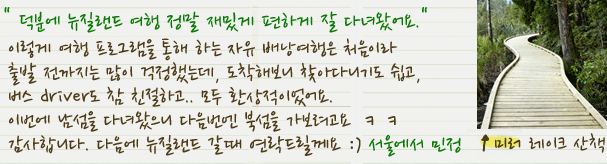 " 덕분에 뉴질랜드 여행 정말 재밌게 편하게 잘 다녀왔어요."
이렇게 여행 프로그램을 통해 하는 자유 배낭여행은 처음이라
출발 전까지는 많이 걱정했는데, 도착해보니 찾아다니기도 쉽고,
버스 driver도 참 친절하고.. 모두 환상적이었어요.
이번에 남섬을 다녀왔으니 다음번엔 북섬을 가보려고요 ㅋ ㅋ
감사합니다. 다음에 뉴질랜드 갈때 연락드릴게요 :) 서울에서 민정 ↑ 미러 레이크 산책